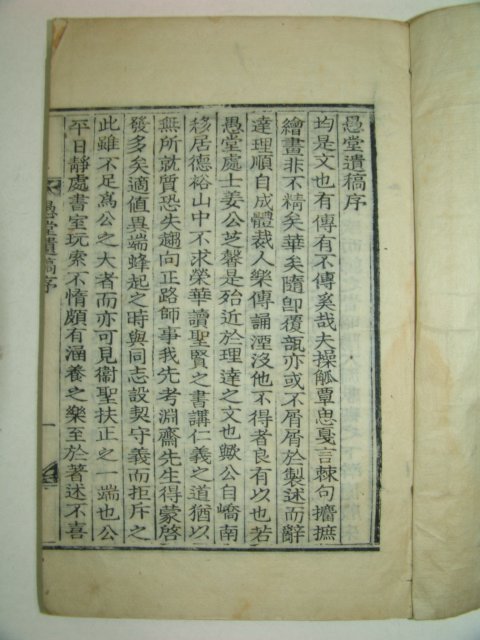 愚堂遺稿序
均是文也有傳有不傳奚哉夫操觚覃思戛言棘句擒摭
繪畫非不精矣華矣隨卽覆瓿亦或不屑屑於製述而辭
達理順自成體裁人樂傳誦湮沒他不得者良有以也若
愚堂處士姜公芝馨是殆近於理達之文也歟公自嶠南
移居德裕山中不求榮華讀聖賢之書講仁義之道猶以
無所就質恐失趨向正路師事我先考淵齋先生得蒙啓
發多矣適値異端蜂起之時與同志設契守義而拒斥之
此雖不足爲公之大者而亦可見衞聖扶正之一端也公
平日靜處書室玩索不惰頗有涵養之樂至於著述不喜
愚堂遺稿序
一